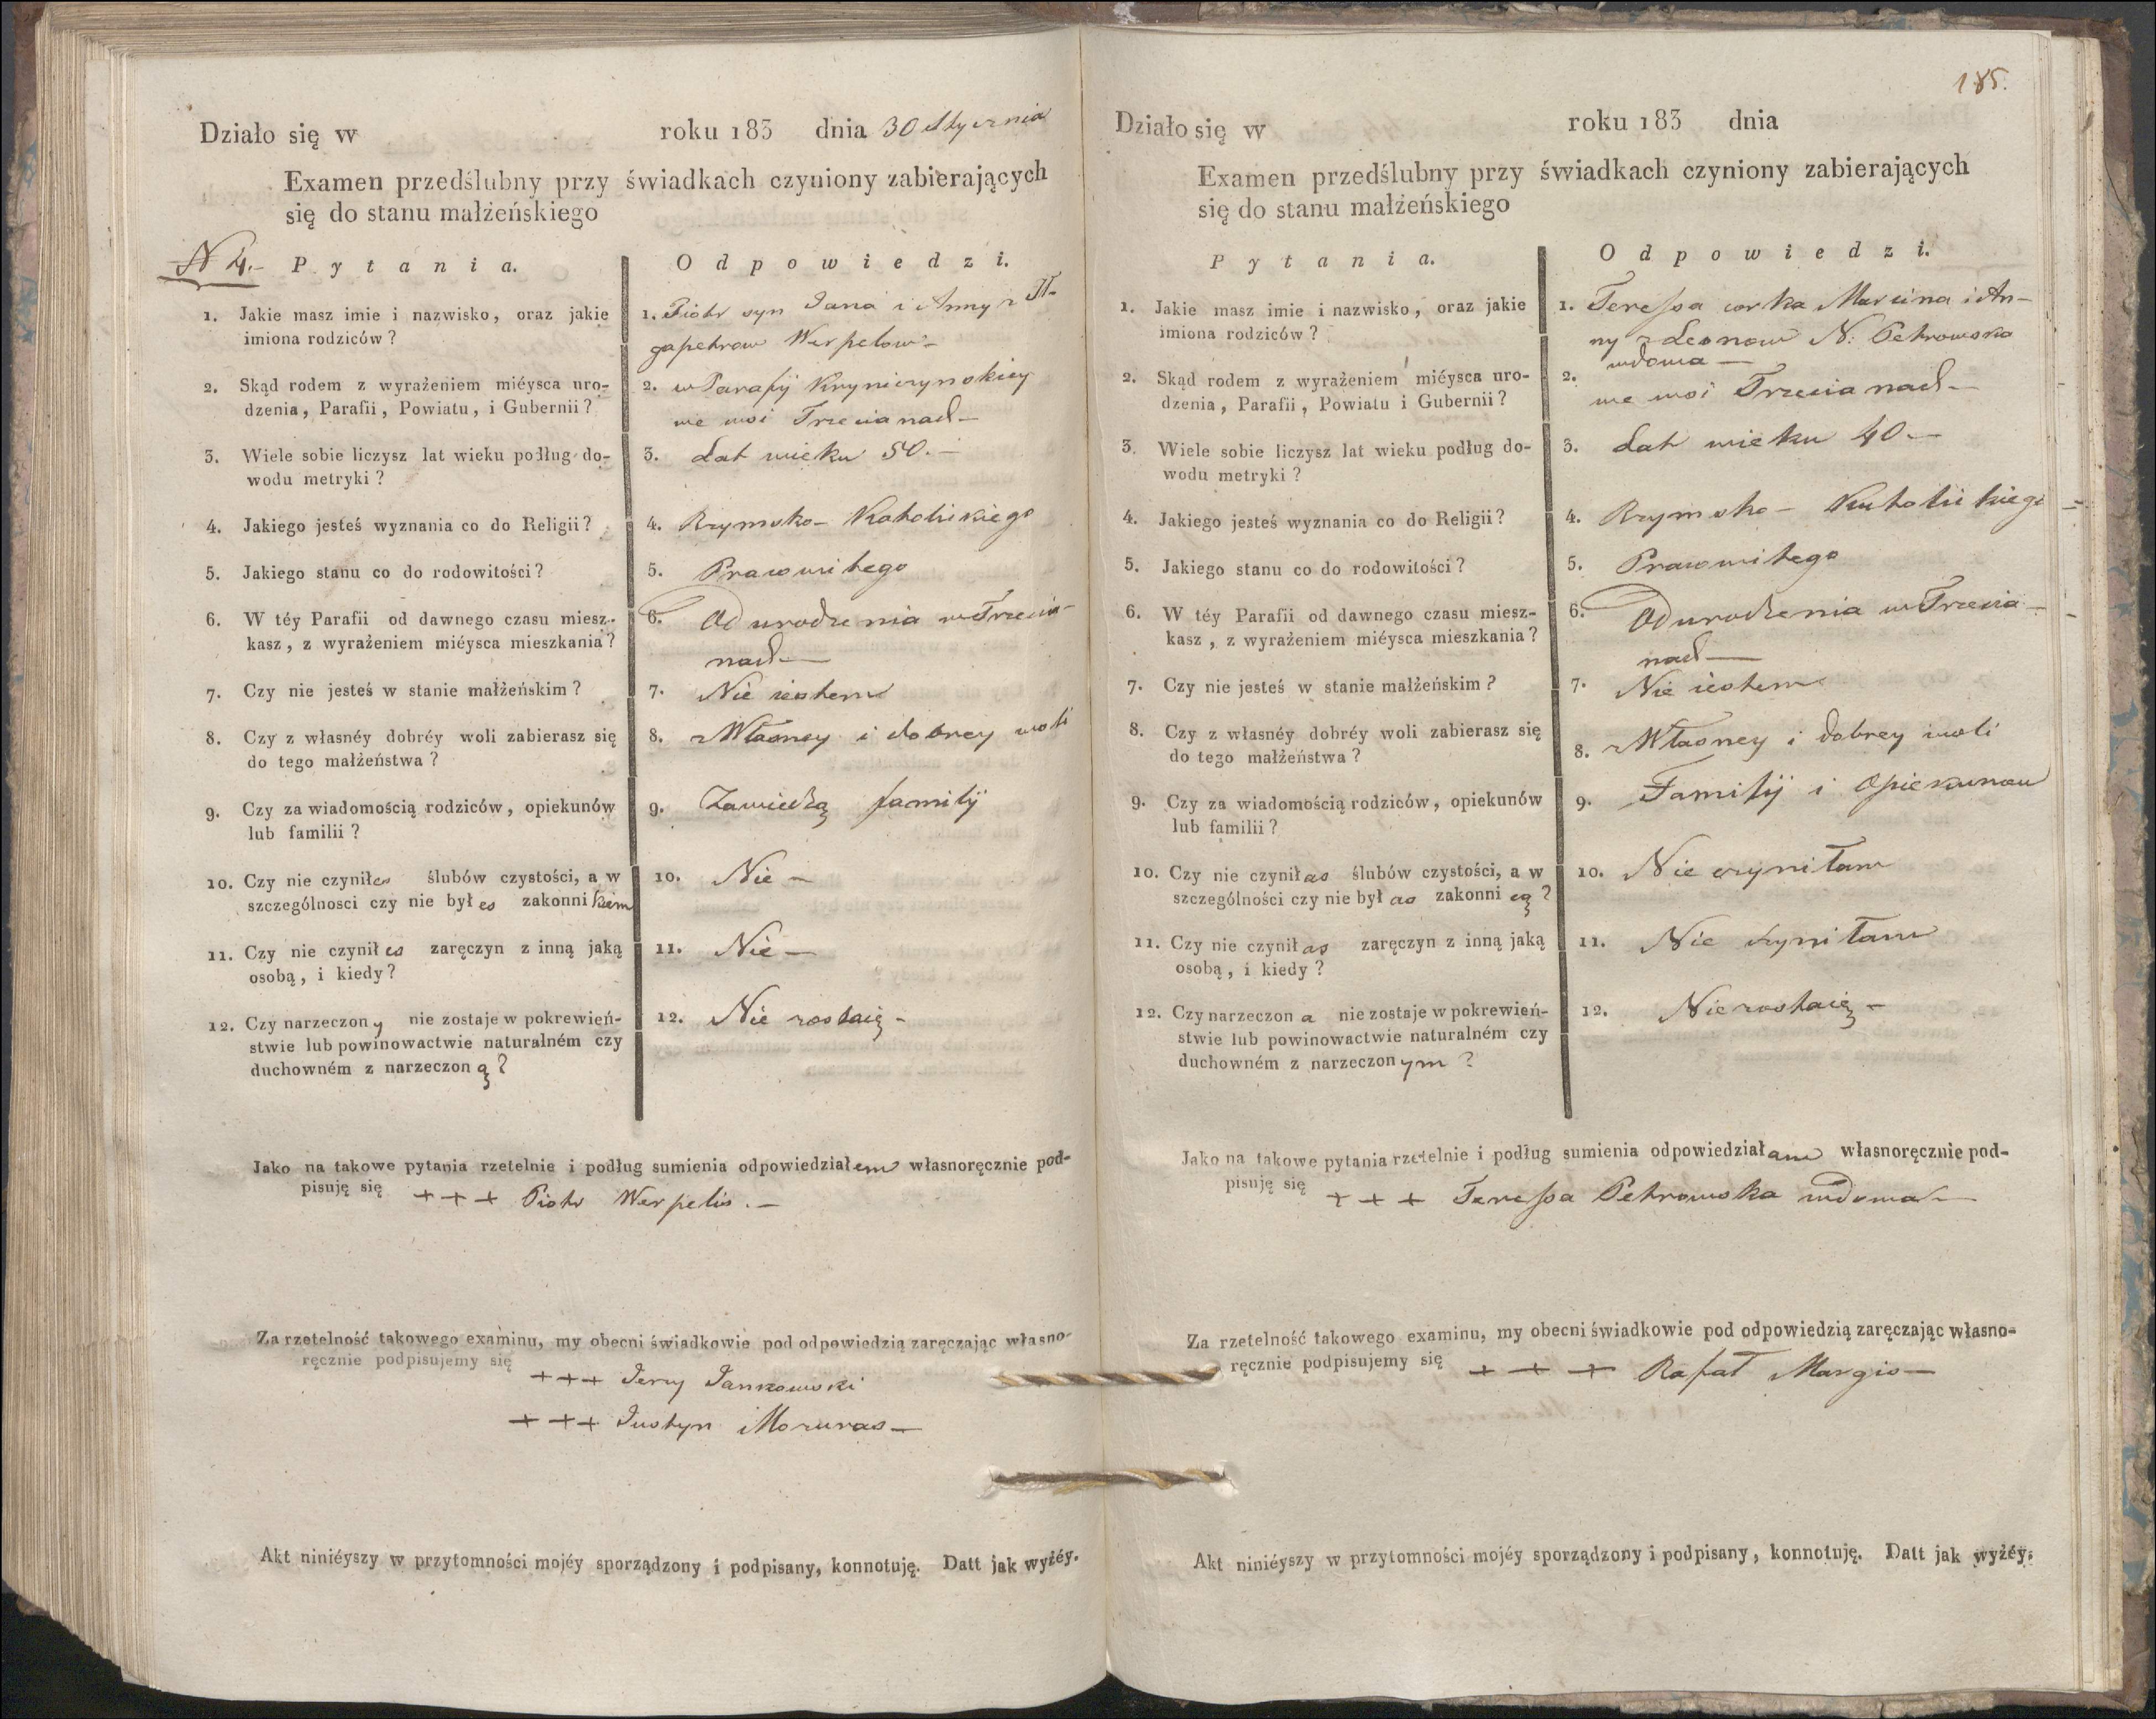 Działo się w roku 183 dnia 30 Stycznia
Examen przedślubny przy świadkach czyniony zabierających
się do stanu małżeńskiego
N 4.- Pytania. Odpowiedzi.
1. Jakie masz imie i nazwisko, oraz jakie
imiona rodziców?
1. Piotr syn Jana i Anny z
Werpelow-
2. Skąd rodem z wyrażeniem miéysca uro-
dzenia, Parafii, Powiatu, i Gubernii?
2. w Parafij Kryniczynskiey
we wsi Trzecianach-
3. Wiele sobie liczysz lat wieku podług do-
wodu metryki?
3. Lat wieku 50.-
4. Jakiego jesteś wyznania co do Religii?
4. Rzymsko- Katolickiego
5. Jakiego stanu co do rodowitości?
5. Prawowitego
6. W téy Parafii od dawnego czasu miesz-
kasz, z wyrażeniem miéysca mieszkania?
6. Od urodzenia w Trzecia-
nach-
7. Czy nie jesteś w stanie małżeńskim?
7. Nie iestem
8. Czy z własnéy dobréy woli zabierasz się
do tego małżeństwa?
8. z Własney i dobrey woli
9. Czy za wiadomością rodziców, opiekunów
lub familii?
9. Zawiedzą familij
10. Czy nie czyniłeś ślubów czystości, a w
szczególnosci czy nie był eś zakonnikiem
10. Nie-
11. Czy nie czynił eś zaręczyn z inną jaką
osobą, i kiedy?
11. Nie-
12. Czy narzeczony nie zostaje w pokrewień-
stwie lub powinowactwie naturalném czy
duchowném z narzeczoną?
12. Nie zostaię-
Jako na takowe pytania rzetelnie i podług sumienia odpowiedziałem własnoręcznie pod-
pisuję się +++ Piotr Werpelis.-
Za rzetelność takowego examinu, my obecni świadkowie pod odpowiedzią zaręczając własno-
ręcznie podpisujemy się
+++ Jerzy Jankowski
+++ Justyn Mozuras-
Akt niniéyszy w przytomności mojéy sporządzony i podpisany, konnotuję. Datt jak wyżéy.
185.
Działo się w roku 183 dnia
Examen przedślubny przy świadkach czyniony zabierających
się do stanu małżeńskiego
Pytania. Odpowiedzi.
1. Jakie masz imie i nazwisko, oraz jakie
imiona rodziców?
1. Teressa corka Marcina i An-
ny z Leonow N: Petrowska
wdowa-
2. Skąd rodem z wyrażeniem miéysca uro-
dzenia, Parafii, Powiatu i Gubernii?
2. we wsi Trzecianach-
3. Wiele sobie liczysz lat wieku podług do-
wodu metryki?
3. Lat wieku 40.-
4. Jakiego jesteś wyznania co do Religii?
4. Rzymsko- Katolickiego
5. Jakiego stanu co do rodowitości?
5. Prawowitego
6. W téy Parafii od dawnego czasu miesz-
kasz, z wyrażeniem miéysca mieszkania?
6. Od urodzenia w Trzecia-
nach-
7. Czy nie jesteś w stanie małżeńskim?
7. Nie iestem
8. Czy z własnéy dobréy woli zabierasz się
do tego małżeństwa?
8. z Własney i dobrey woli
9. Czy za wiadomością rodziców, opiekunów
lub familii?
9. Familij i Opiekunow
10. Czy nie czyniłaś ślubów czystości, a w
szczególności czy nie był aś zakonnicą?
10. Nie czyniłam
11. Czy nie czyniłaś zaręczyn z inną jaką
osobą, i kiedy?
11. Nie czyniłam
12. Czy narzeczona nie zostaje w pokrewień-
stwie lub powinowactwie naturalném czy
duchowném z narzeczonym?
12. Nie zostaię-
Jako na takowe pytania rzetelnie i podług sumienia odpowiedziałam własnoręcznie pod-
pisuję się +++ Teressa Petrowska wdowa-
Za rzetelność takowego examinu, my obecni świadkowie pod odpowiedzią zaręczając własno-
ręcznie podpisujemy się +++ Rafał Margis-
Akt niniéyszy w przytomności mojéy sporządzony i podpisany, konnotuję. Datt jak wyżéy.